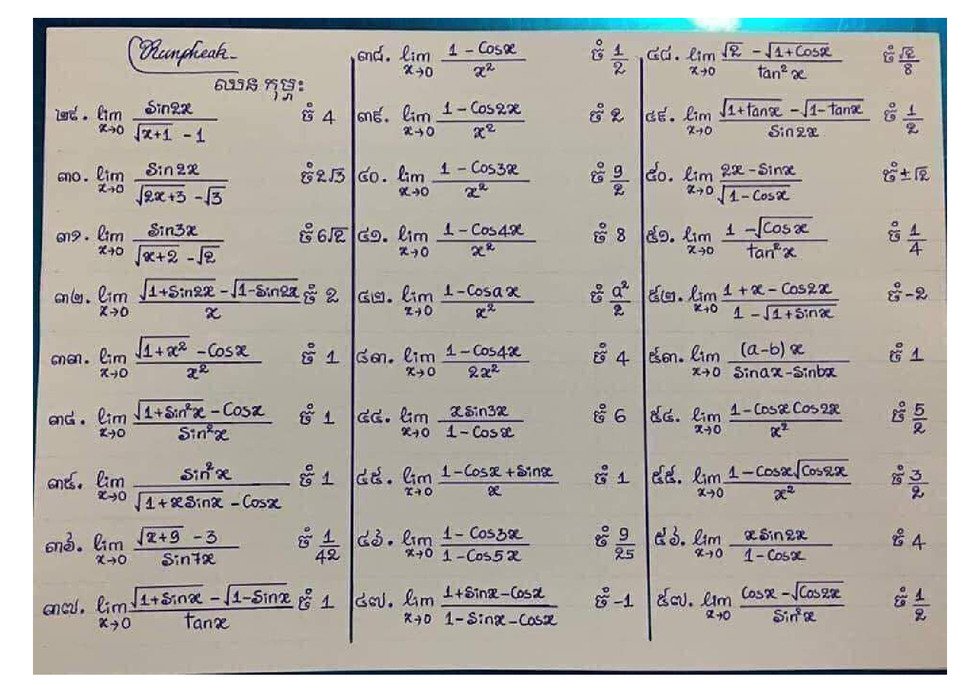 Runpheak
ឈន កុម្ភះ
២៩. lim x→0 Sin2x / (√(x+1) - 1) ចំ 4
៣០. lim x→0 Sin2x / (√(2x+3) - √3) ចំ 2√3
៣១. lim x→0 Sin3x / (√(x+2) - √2) ចំ 6√2
៣២. lim x→0 (√(1+Sin2x) - √(1-Sin2x)) / x ចំ 2
៣៣. lim x→0 (√(1+x²) - Cosx) / x² ចំ 1
៣៤. lim x→0 (√(1+Sin²x) - Cosx) / Sin²x ចំ 1
៣៥. lim x→0 Sin²x / (√(1+xSinx) - Cosx) ចំ 1
៣៦. lim x→0 (√(x+9) - 3) / Sin7x ចំ 1/42
៣៧. lim x→0 (√(1+Sinx) - √(1-Sinx)) / tanx ចំ 1
៣៨. lim x→0 (1 - Cosx) / x² ចំ 1/2
៣៩. lim x→0 (1 - Cos2x) / x² ចំ 2
៤០. lim x→0 (1 - Cos3x) / x² ចំ 9/2
៤១. lim x→0 (1 - Cos4x) / x² ចំ 8
៤២. lim x→0 (1-Cosax) / x² ចំ a²/2
៤៣. lim x→0 (1-Cos4x) / 2x² ចំ 4
៤៤. lim x→0 xSin3x / (1-Cosx) ចំ 6
៤៥. lim x→0 (1-Cosx+Sinx) / x ចំ 1
៤៦. lim x→0 (1-Cos3x) / (1-Cos5x) ចំ 9/25
៤៧. lim x→0 (1+Sinx-Cosx) / (1-Sinx-Cosx) ចំ -1
៤៨. lim x→0 (√2 - √(1+Cosx)) / tan²x ចំ √2/8
៤៩. lim x→0 (√(1+tanx) - √(1-tanx)) / Sin2x ចំ 1/2
៥០. lim x→0 (2x-Sinx) / √(1-Cosx) ចំ ±√2
៥១. lim x→0 (1-√(Cosx)) / tan²x ចំ 1/4
៥២. lim x→0 (1+x-Cos2x) / (1-√(1+Sinx)) ចំ -2
៥៣. lim x→0 (a-b)x / (Sinax-Sinbx) ចំ 1
៥៤. lim x→0 (1-CosxCos2x) / x² ចំ 5/2
៥៥. lim x→0 (1-Cosx√(Cos2x)) / x² ចំ 3/2
៥៦. lim x→0 xSin2x / (1-Cosx) ចំ 4
៥៧. lim x→0 (Cosx-√(Cos2x)) / Sin²x ចំ 1/2